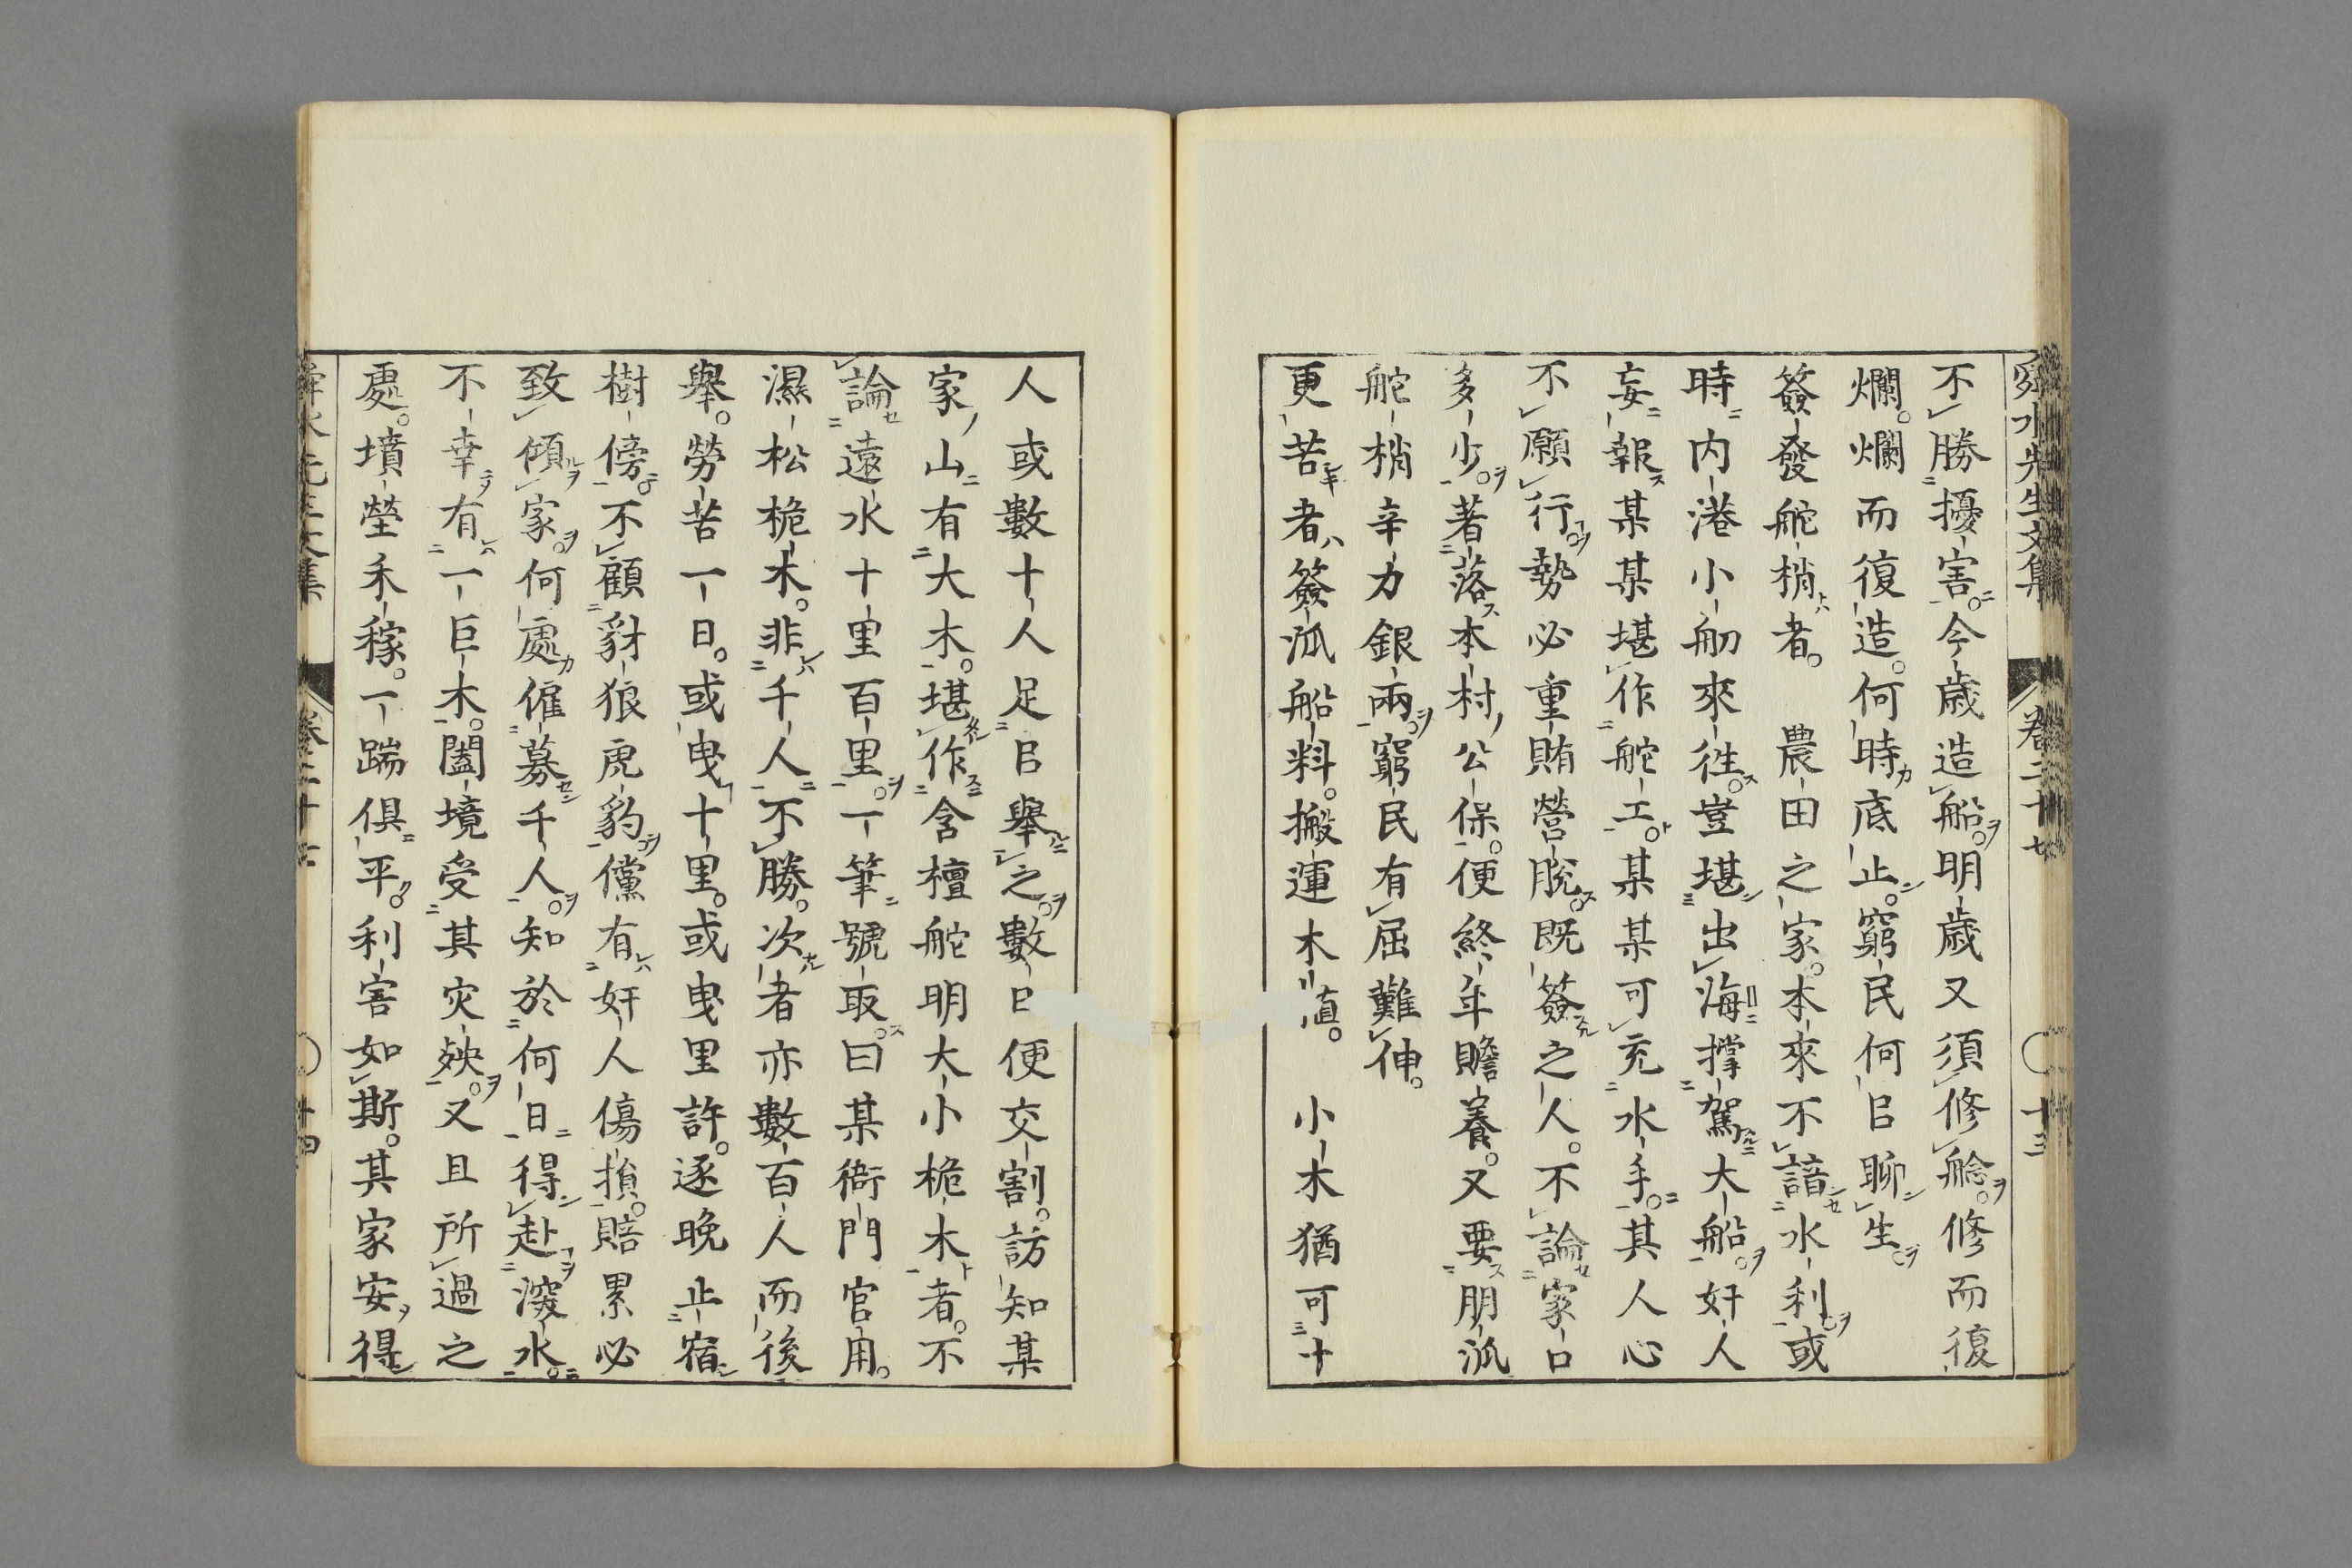 舜水先生文集 卷二十七 十三
不勝擾害。今歳造船。明歳又須修艌。修而復
爛。爛而復造。何時底止。窮民何㠯聊生。
簽發舵梢者。 農田之家。本來不諳水利。或
時内港小舠來往。豈堪出海撑駕大船。奸人
妄報某某堪作舵工。某某可充水手。其人心
不願行。勢必重賄營脫。既簽之人。不論家口
多少。著落本村公保。便終年贍養。又要朋派
舵梢辛力銀兩。窮民有屈難伸。
更苦者。簽派船料。搬運木 。 小木猶可十
人或數十人足㠯舉之。數 便交割。訪知某
家山有大木。堪作含檀舵明大小桅木者。不
論遠水十里百里。一筆號取。曰某衙門官用。
濕松桅木。非千人不勝。次者亦數百人而後
舉。勞苦一日。或曳十里。或曳里許。逐晩止宿
樹傍。不顧豺狼虎豹。儻有奸人傷損。賠累必
致傾家。何處僱募千人。知於何日得赴深水。
不幸有一巨木。闔境受其灾殃。又且所過之
處。墳塋禾稼。一踹俱平。利害如斯。其家安得
舜水先生文集 卷二十七 十四